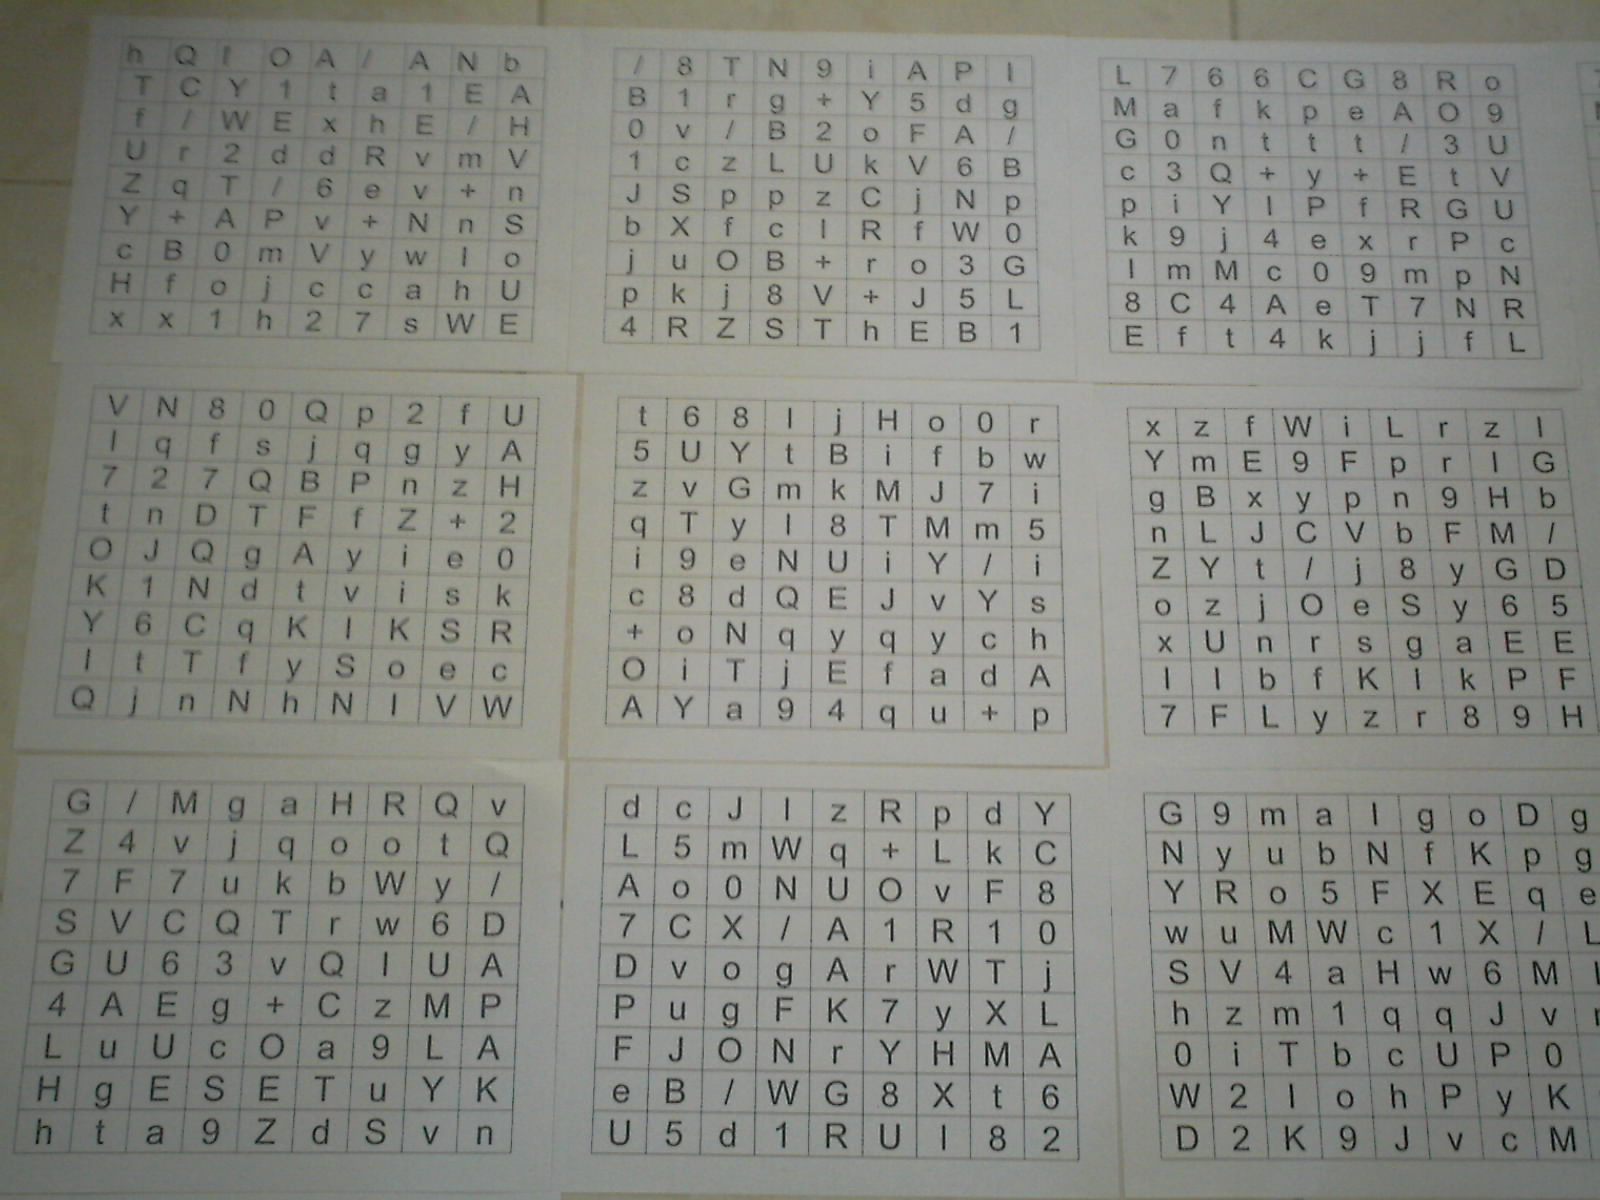 h Q I O A / A N b
T C Y 1 t a 1 E A
f / W E x h E / H
U r 2 d d R v m V
Z q T / 6 e v + n
Y + A P v + N n S
c B 0 m V y w l o
H f o j c c a h U
x x 1 h 2 7 s W E
/ 8 T N 9 i A P l
B 1 r g + Y 5 d g
0 v / B 2 o F A /
1 c z L U k V 6 B
J S p p z C j N p
b X f c l R f W 0
j u O B + r o 3 G
p k j 8 V + J 5 L
4 R Z S T h E B 1
L 7 6 6 C G 8 R o
M a f k p e A O 9
G 0 n t t t / 3 U
c 3 Q + y + E t V
p i Y I P f R G U
k 9 j 4 e x r P c
l m M c 0 9 m p N
8 C 4 A e T 7 N R
E f t 4 k j j f L
V N 8 0 Q p 2 f U
l q f s j q g y A
7 2 7 Q B P n z H
t n D T F f Z + 2
O J Q g A y i e 0
K 1 N d t v i s k
Y 6 C q K I K S R
I t T f y S o e c
Q j n N h N I V W
t 6 8 I j H o 0 r
5 U Y t B i f b w
z v G m k M J 7 i
q T y I 8 T M m 5
i 9 e N U i Y / i
c 8 d Q E J v Y s
+ o N q y q y c h
O i T j E f a d A
A Y a 9 4 q u + p
x z f W i L r z I
Y m E 9 F p r I G
g B x y p n 9 H b
n L J C V b F M /
Z Y t / j 8 y G D
o z j O e S y 6 5
x U n r s g a E E
I I b f K I k P F
7 F L y z r 8 9 H
G / M g a H R Q v
Z 4 v j q o o t Q
7 F 7 u k b W y /
S V C Q T r w 6 D
G U 6 3 v Q I U A
4 A E g + C z M P
L u U c O a 9 L A
H g E S E T u Y K
h t a 9 Z d S v n
d c J I z R p d Y
L 5 m W q + L k C
A o 0 N U O v F 8
7 C X / A 1 R 1 0
D v o g A r W T j
P u g F K 7 y X L
F J O N r Y H M A
e B / W G 8 X t 6
U 5 d 1 R U I 8 2
G 9 m a I g o D g
N y u b N f K p g
Y R o 5 F X E q e
w u M W c 1 X / L
S V 4 a H w 6 M
h z m 1 q q J v
0 i T b c U P 0
W 2 I o h P y K
D 2 K 9 J v c M